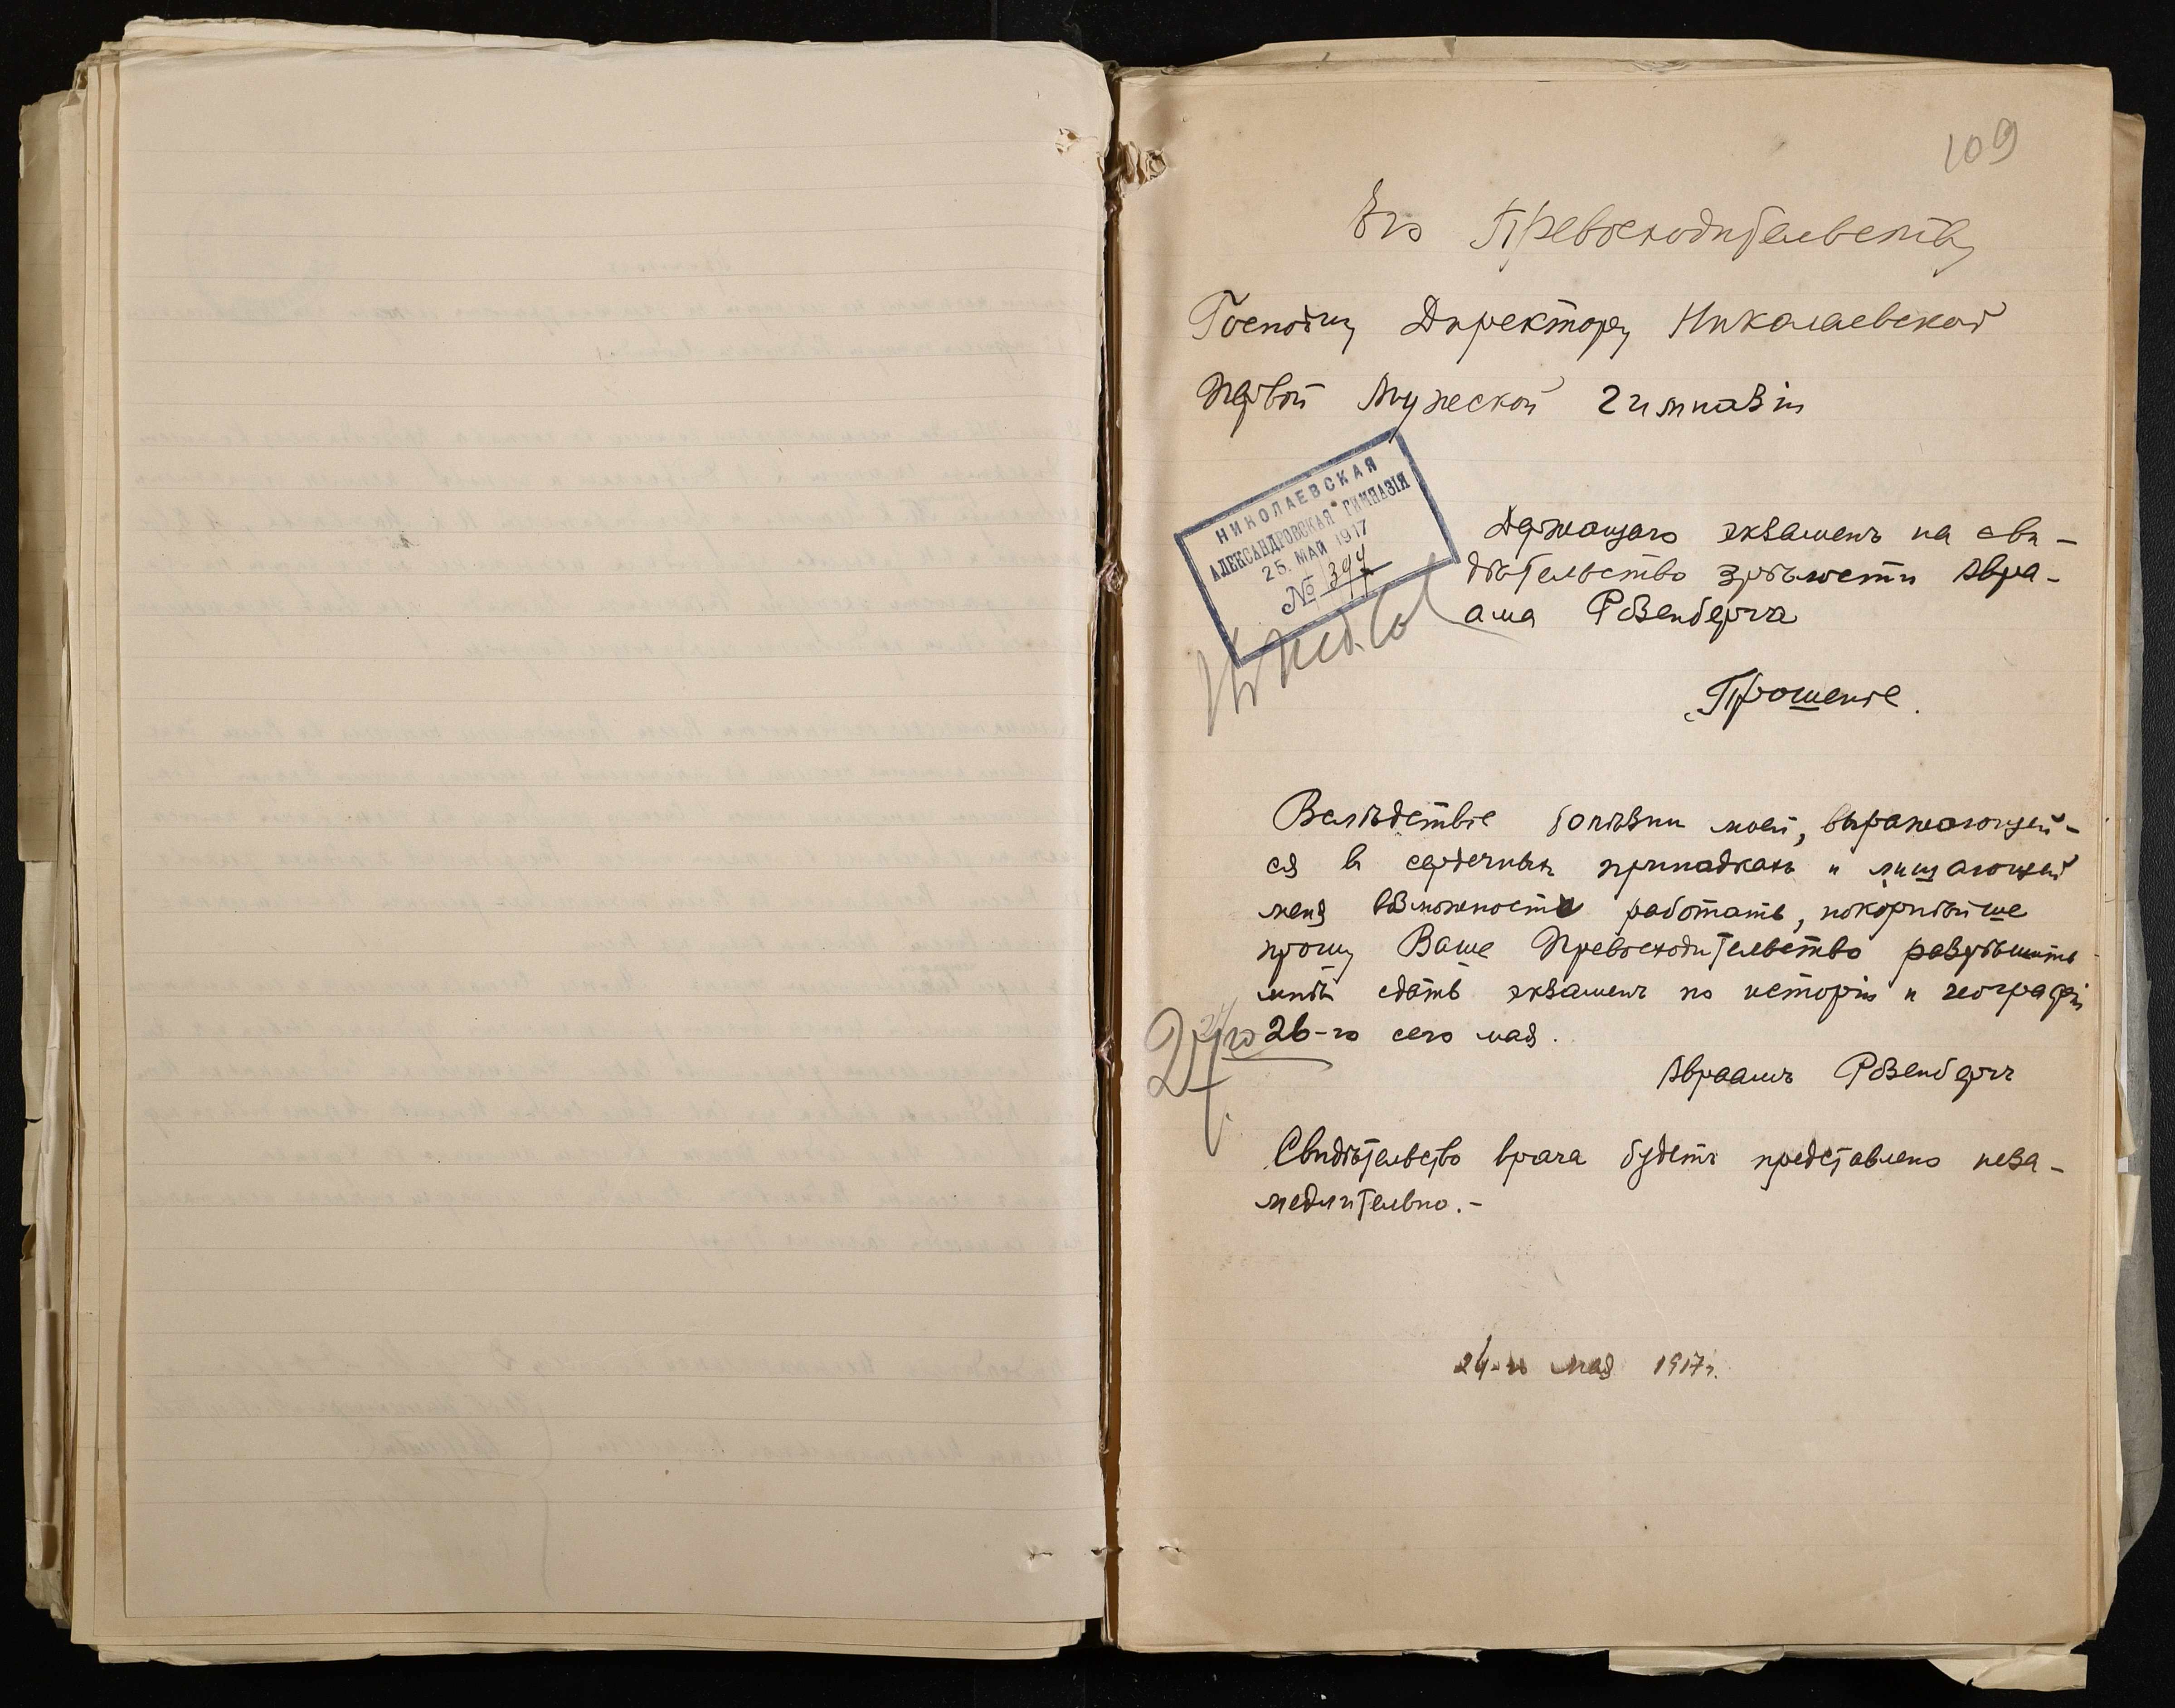 109
Его Превосходительству
Господину Директору Николаевской
Первой Мужской Гимназіи
НИКОЛАЕВСКАЯ
АЛЕКСАНДРОВСКАЯ ГИМНАЗІЯ
25. МАЙ 1917
№ 394
Держащаго экзаменъ на сви-
дѣтельство зрѣлости Авра-
ама Розенберга
Прошеніе.
Вслѣдствіе болѣзни моей, выражающей-
ся въ сердечныхъ припадкахъ и лишающей
меня возможности работать, покорнѣйше
прошу Ваше Превосходительство разрѣшить
мнѣ сдать экзаменъ по исторіи и географіи
26-го сего мая.
Авраамъ Розенбергъ
Свидѣтельство врача будетъ представлено неза-
медлительно.-
24-го мая 1917 г.